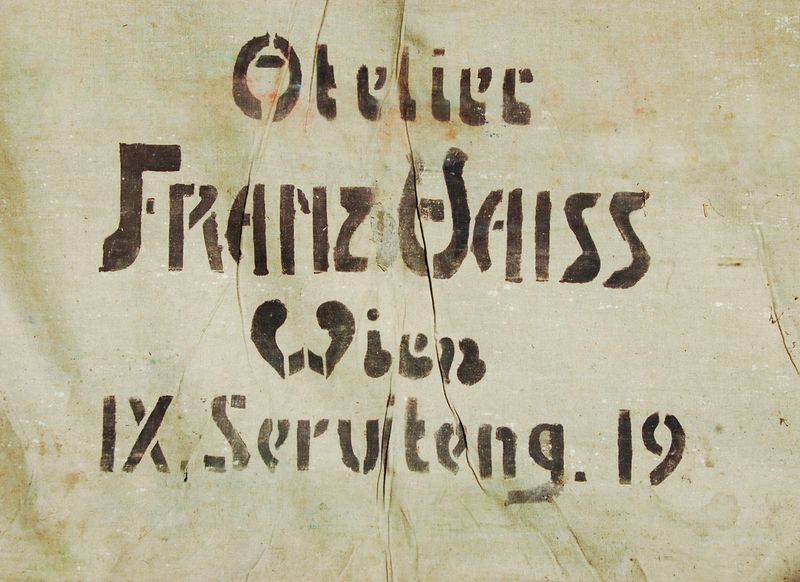 Atelier
FRANZ HAISS
Wien
IX. Serviteng. 19